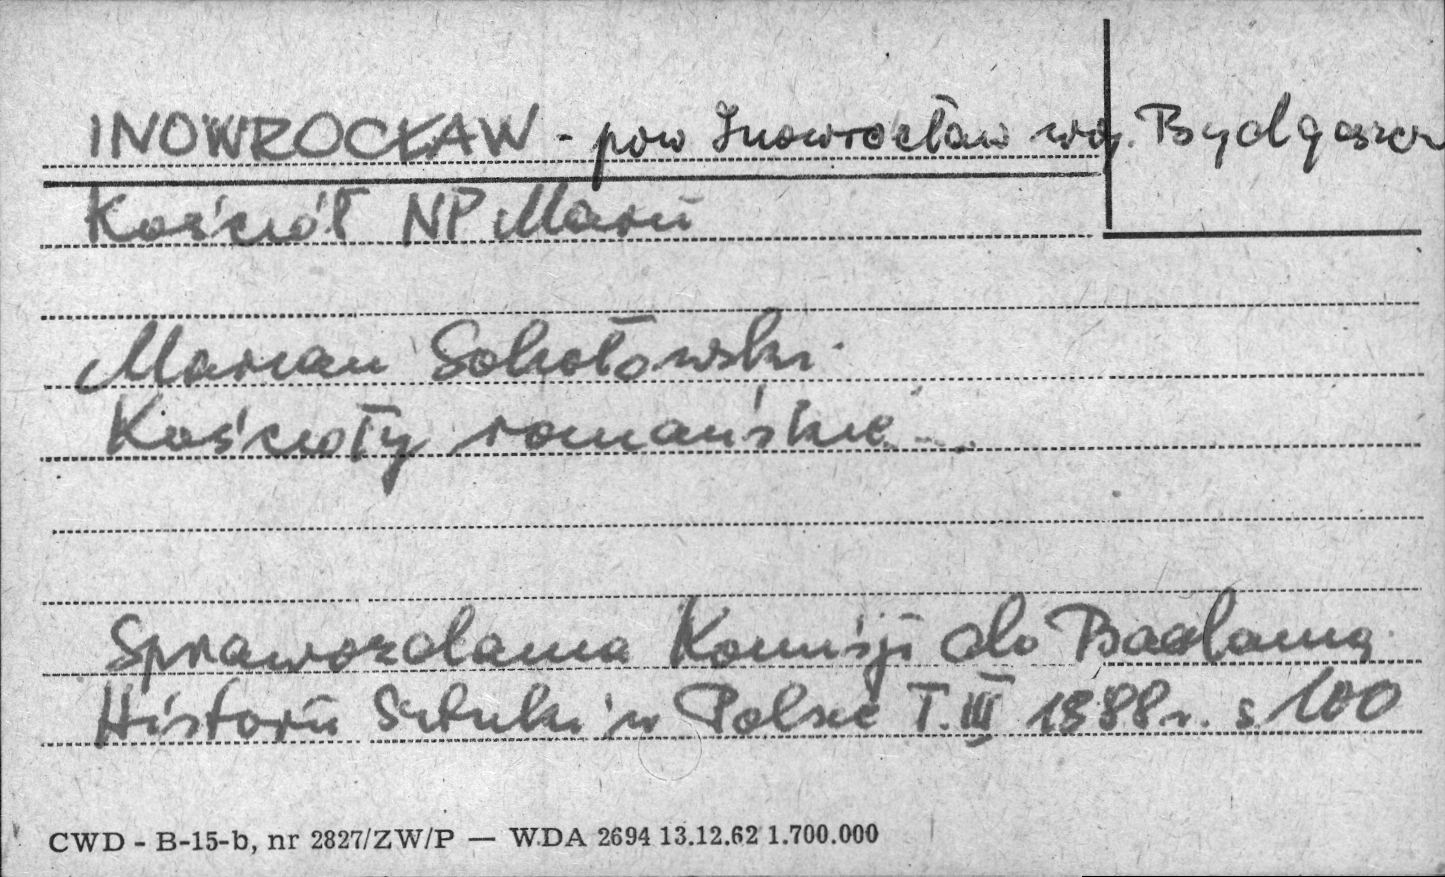 INOWROCŁAW - pow Inowrocław woj. Bydgoszcz
Kościół NP Marii
Marian Sokołowski
Kościoły romańskie...
Sprawozdania Komisji do Badania
Historii Sztuki w Polsce T. III 1888 r. s. 100
CWD - B-15-b, nr 2827/ZW/P — WDA 2694 13.12.62 1.700.000